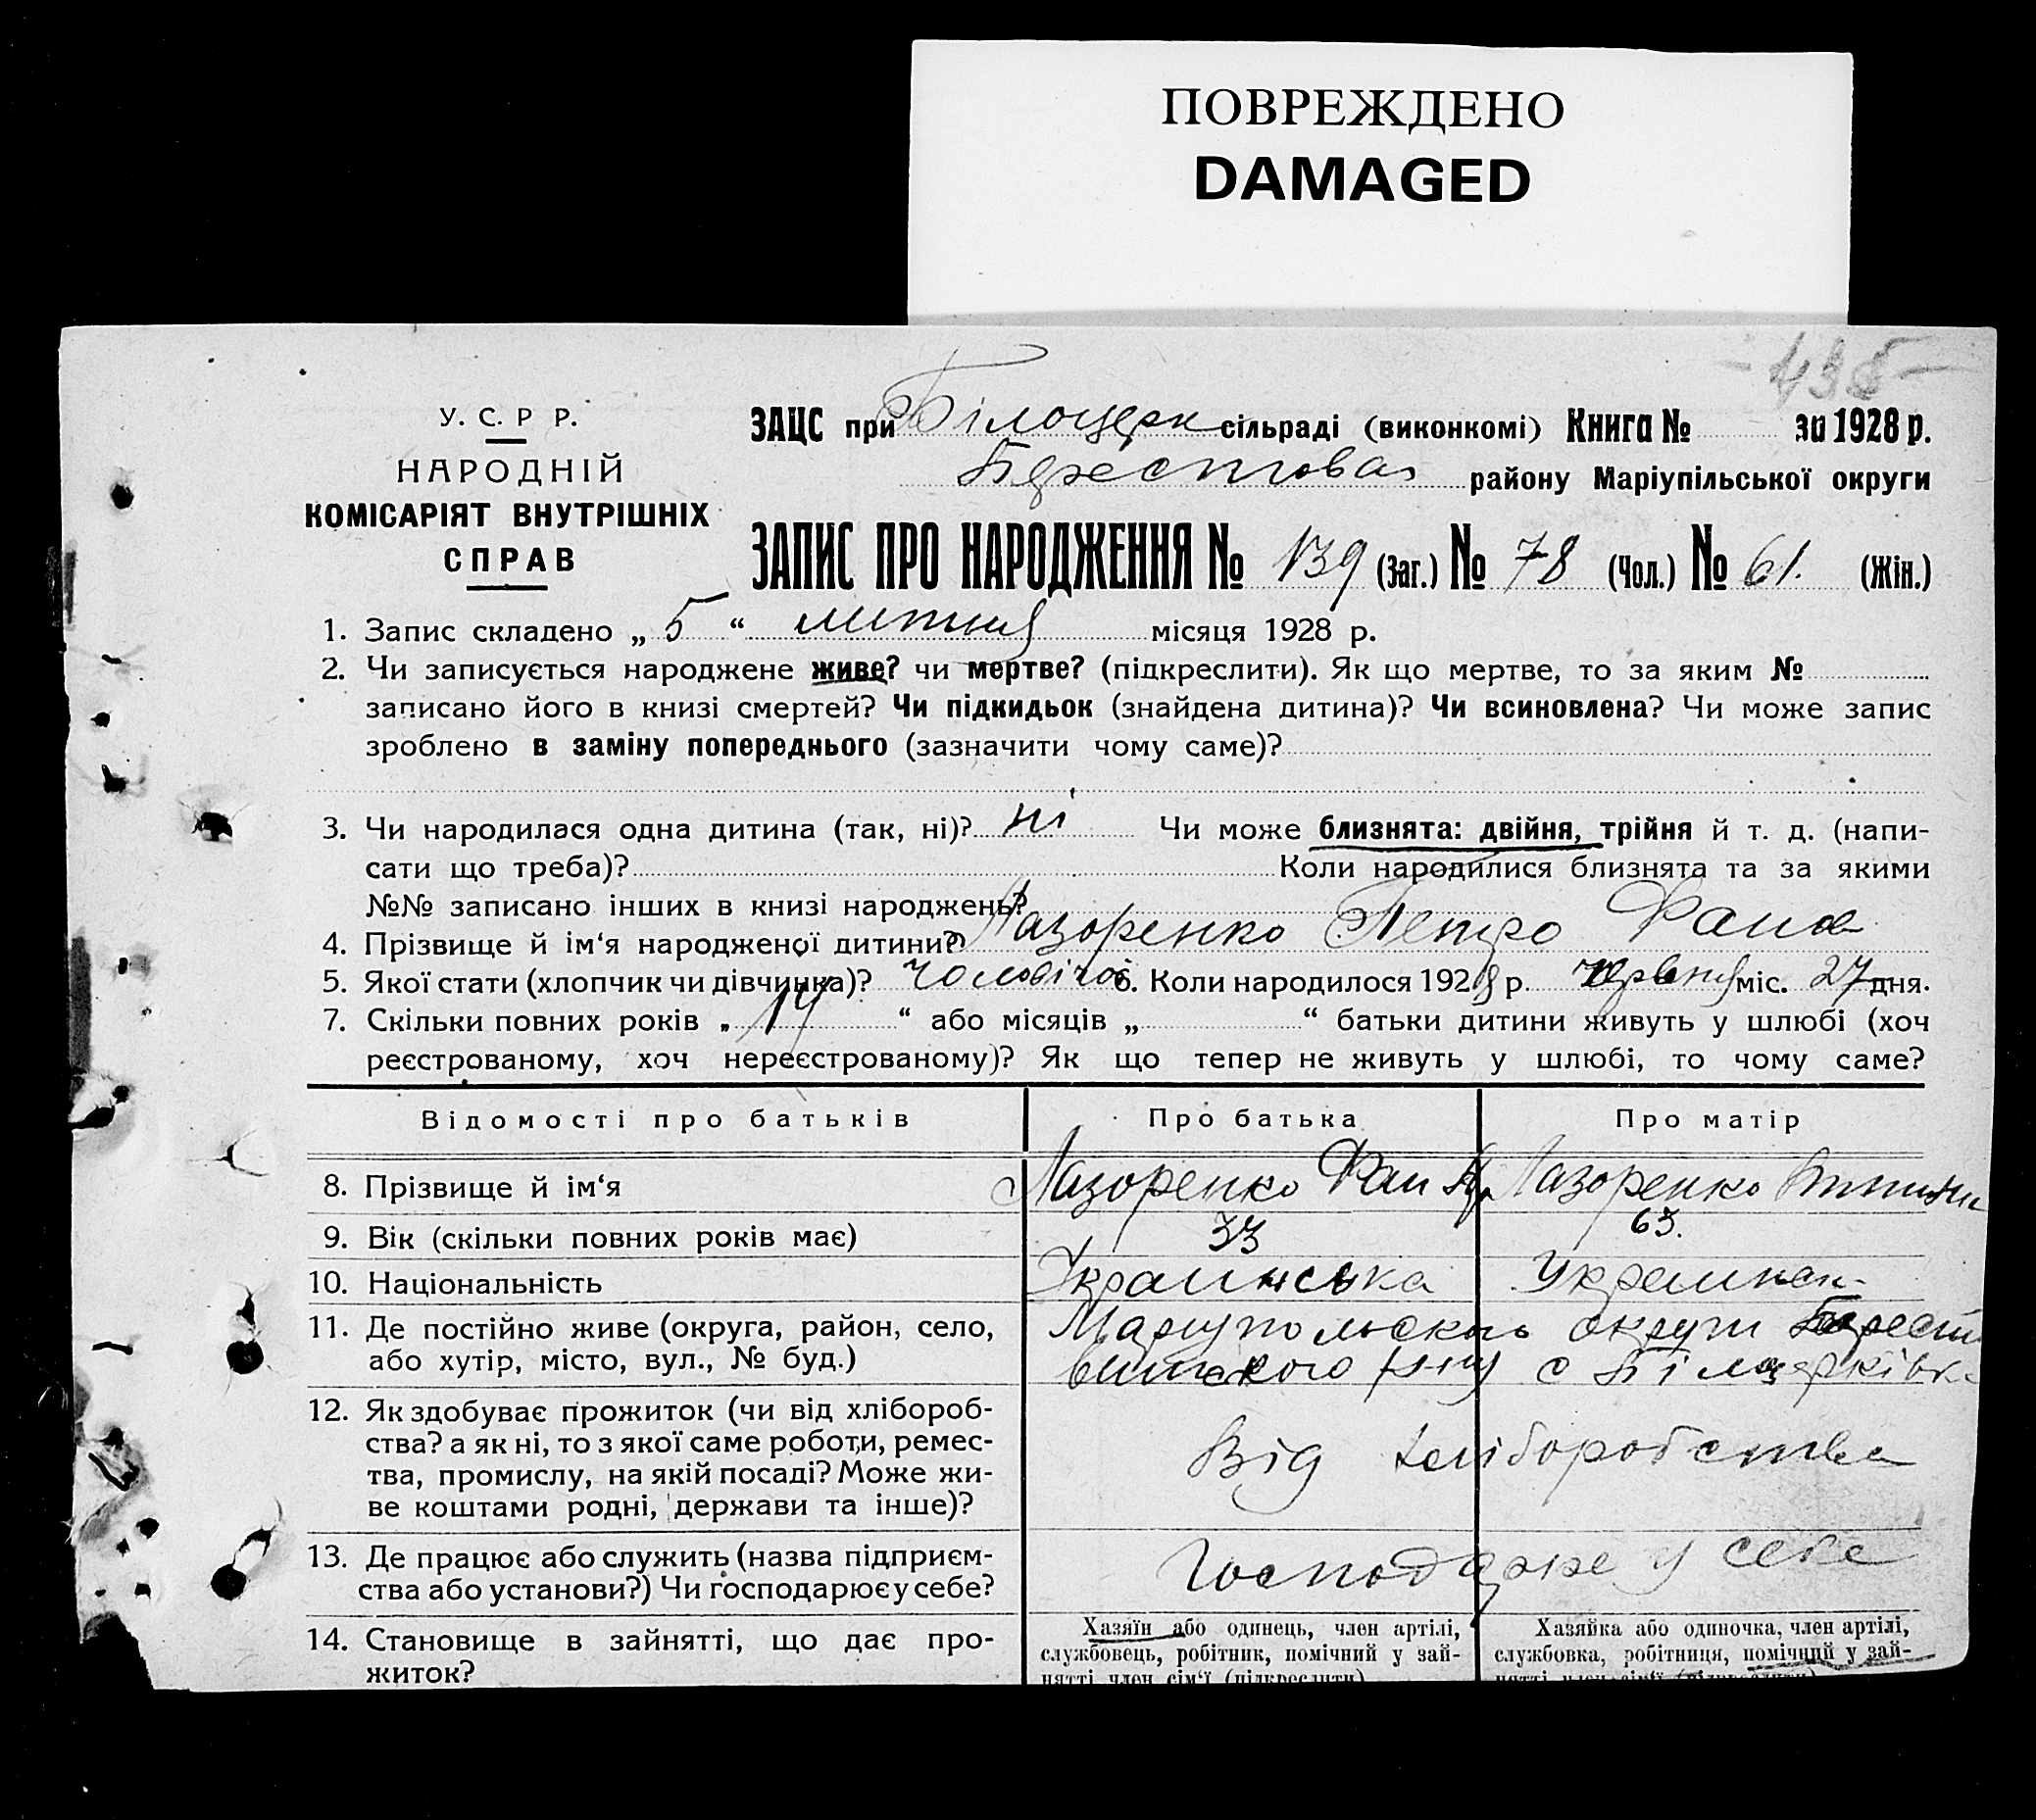 ПОВРЕЖДЕНО
DAMAGED
У. С. Р Р.
НАРОДНІЙ
КОМІСАРІЯТ ВНУТРІШНІХ
СПРАВ
ЗАЦС при Білоцерк сільраді (виконкомі) Книга № за 1928 р.
району Маріупільської округи
ЗАПИС ПРО НАРОДЖЕННЯ № 139 (Заг.) № 78 (Чол.) № 61. (Жін.)
1. Запис складено „ 5 “ липня місяця 1928 р.
2. Чи записується народжене живе? чи мертве? (підкреслити). Як що мертве, то за яким №
записано його в книзі смертей? Чи підкидьок (знайдена дитина)? Чи всиновлена? Чи може запис
зроблено в заміну попереднього (зазначити чому саме)?
3. Чи народилася одна дитина (так, ні)? ні Чи може близнята: двійня, трійня й т. д. (напи-
сати що треба)? Коли народилися близнята та за якими
№№ записано інших в книзі народжень?
4. Прізвище й ім‘я народженої дитини? Лазоренко Петро
5. Якої стати (хлопчик чи дівчинка)? чоловічої 6. Коли народилося 1928 р. червня міс. 27 дня.
7. Скільки повних років „ 14 “ або місяців „ “ батьки дитини живуть у шлюбі (хоч
реєстрованому, хоч нереєстрованому)? Як що тепер не живуть у шлюбі, то чому саме?
Відомості про батьків Про батька Про матір
8. Прізвище й ім‘я Лазоренко Лазоренко
9. Вік (скільки повних років має) 33
10. Національність Украинська
11. Де постійно живе (округа, район, село,
або хутір, місто, вул., № буд.)
округи
12. Як здобуває прожиток (чи від хлібороб-
ства? а як ні, то з якої саме роботи, ремес-
тва, промислу, на якій посаді? Може жи-
ве коштами родні, держави та інше)?
Від хліборобства
13. Де працює або служить (назва підприєм-
ства або установи?) Чи господарює у себе?
у себе
14. Становище в зайнятті, що дає про-
житок?
Хазяїн або одинець, член артілі,
службовець, робітник, помічний у зай-
нятті член сім‘ї (підкреслити)
Хазяйка або одиночка, член артілі,
службовка, робітниця, помічний у зай-
нятті член сім‘ї (підкреслити)